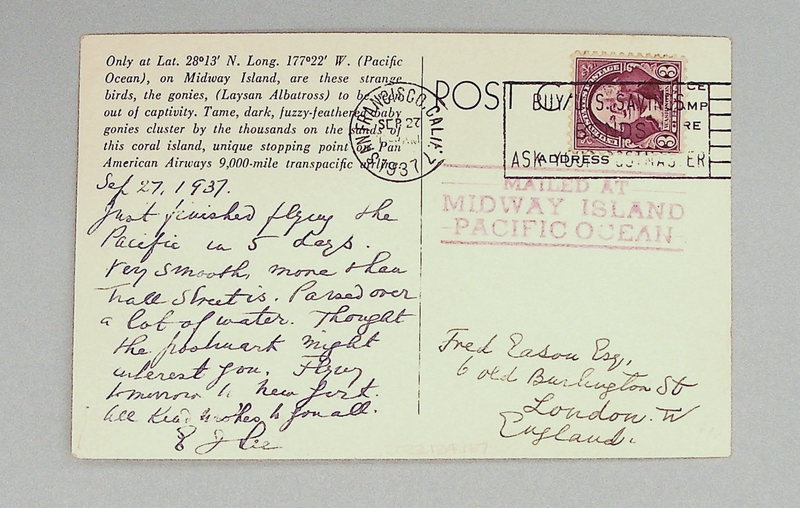 Only at Lat. 28°13' N. Long. 177°22' W. (Pacific
Ocean), on Midway Island, are these strange
birds, the gonies, (Laysan Albatross) to be
out of captivity. Tame, dark, fuzzy-feathered baby
gonies cluster by the thousands on the sands of
this coral island, unique stopping point Pan
American Airways 9,000-mile transpacific airline.
Sep 27, 1937.
Just finished flying the
Pacific in 5 days.
Very smooth, more than
Wall Street is. Passed over
a lot of water. Thought
the postmark might
interest you. Flying
tomorrow to New York.
All kind wishes to you all.
POST C
ADDRESS
SAN FRANCISCO, CALIF.
SEP 27
1937
BUY U.S. SAVINGS
ASK YOUR POSTMASTER
3 3
MAILED AT
MIDWAY ISLAND
PACIFIC OCEAN
Fred Eason Esq,
6 old Burlington St
London. W
England.